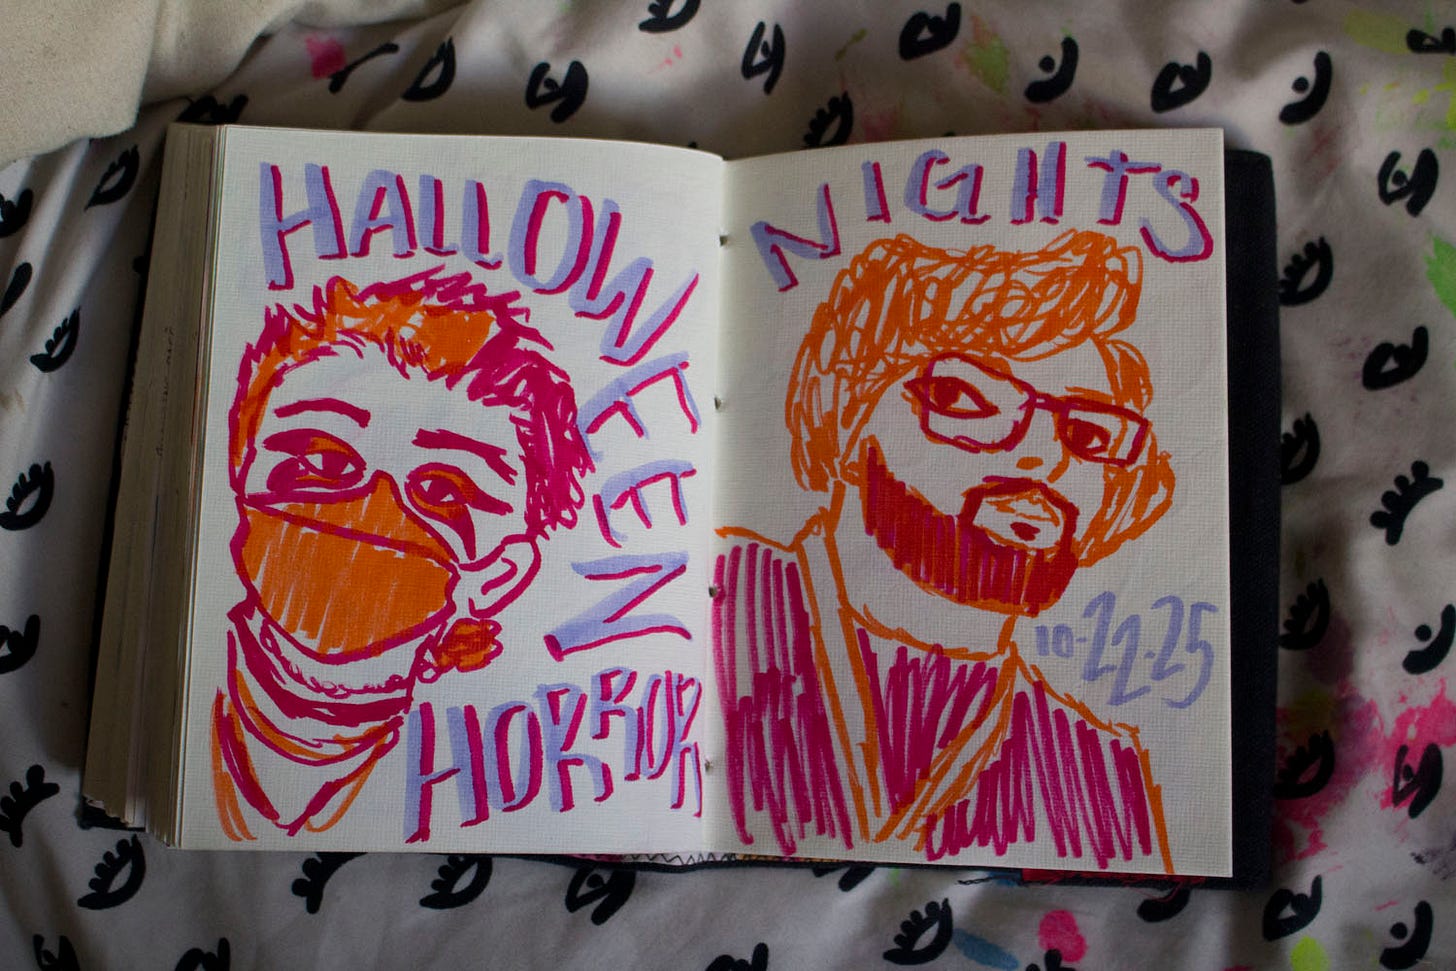 HALLOWEEN
HORROR
NIGHTS
10-22-25